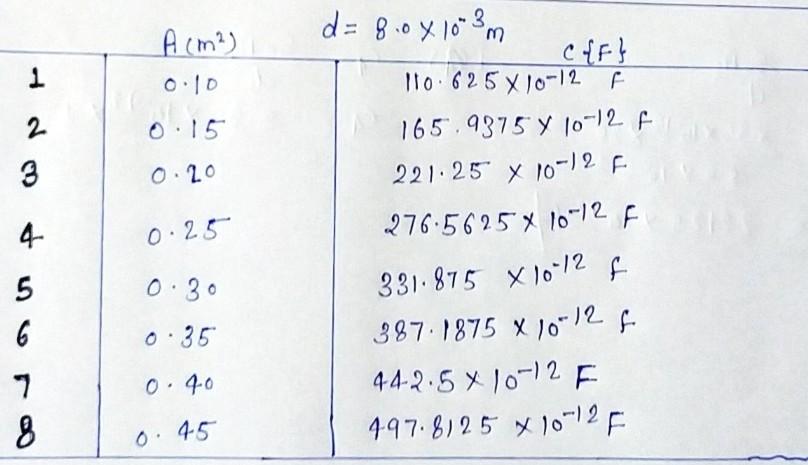 d = 8.0 × 10⁻³ m
A (m²) C {F}
1 0.10 110.625 × 10⁻¹² F
2 0.15 165.9375 × 10⁻¹² F
3 0.20 221.25 × 10⁻¹² F
4 0.25 276.5625 × 10⁻¹² F
5 0.30 331.875 × 10⁻¹² F
6 0.35 387.1875 × 10⁻¹² F
7 0.40 442.5 × 10⁻¹² F
8 0.45 497.8125 × 10⁻¹² F